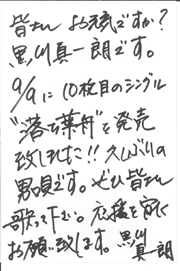 皆さん お元気ですか?
黒川真一朗です。
9/9に 10枚目のシングル
"落ち葉舟"を発売
致しました!! 久しぶりの
男唄です。ぜひ皆さん
歌って下さい。応援を宜しく
お願い致します。黒川
真一朗